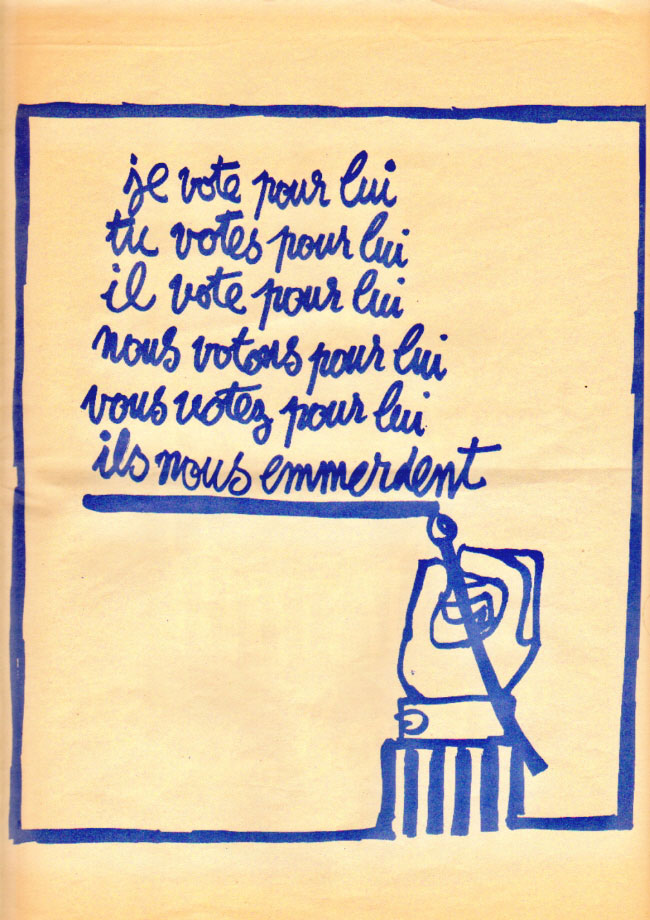 je vote pour lui
tu votes pour lui
il vote pour lui
nous votons pour lui
vous votez pour lui
ils nous emmerdent